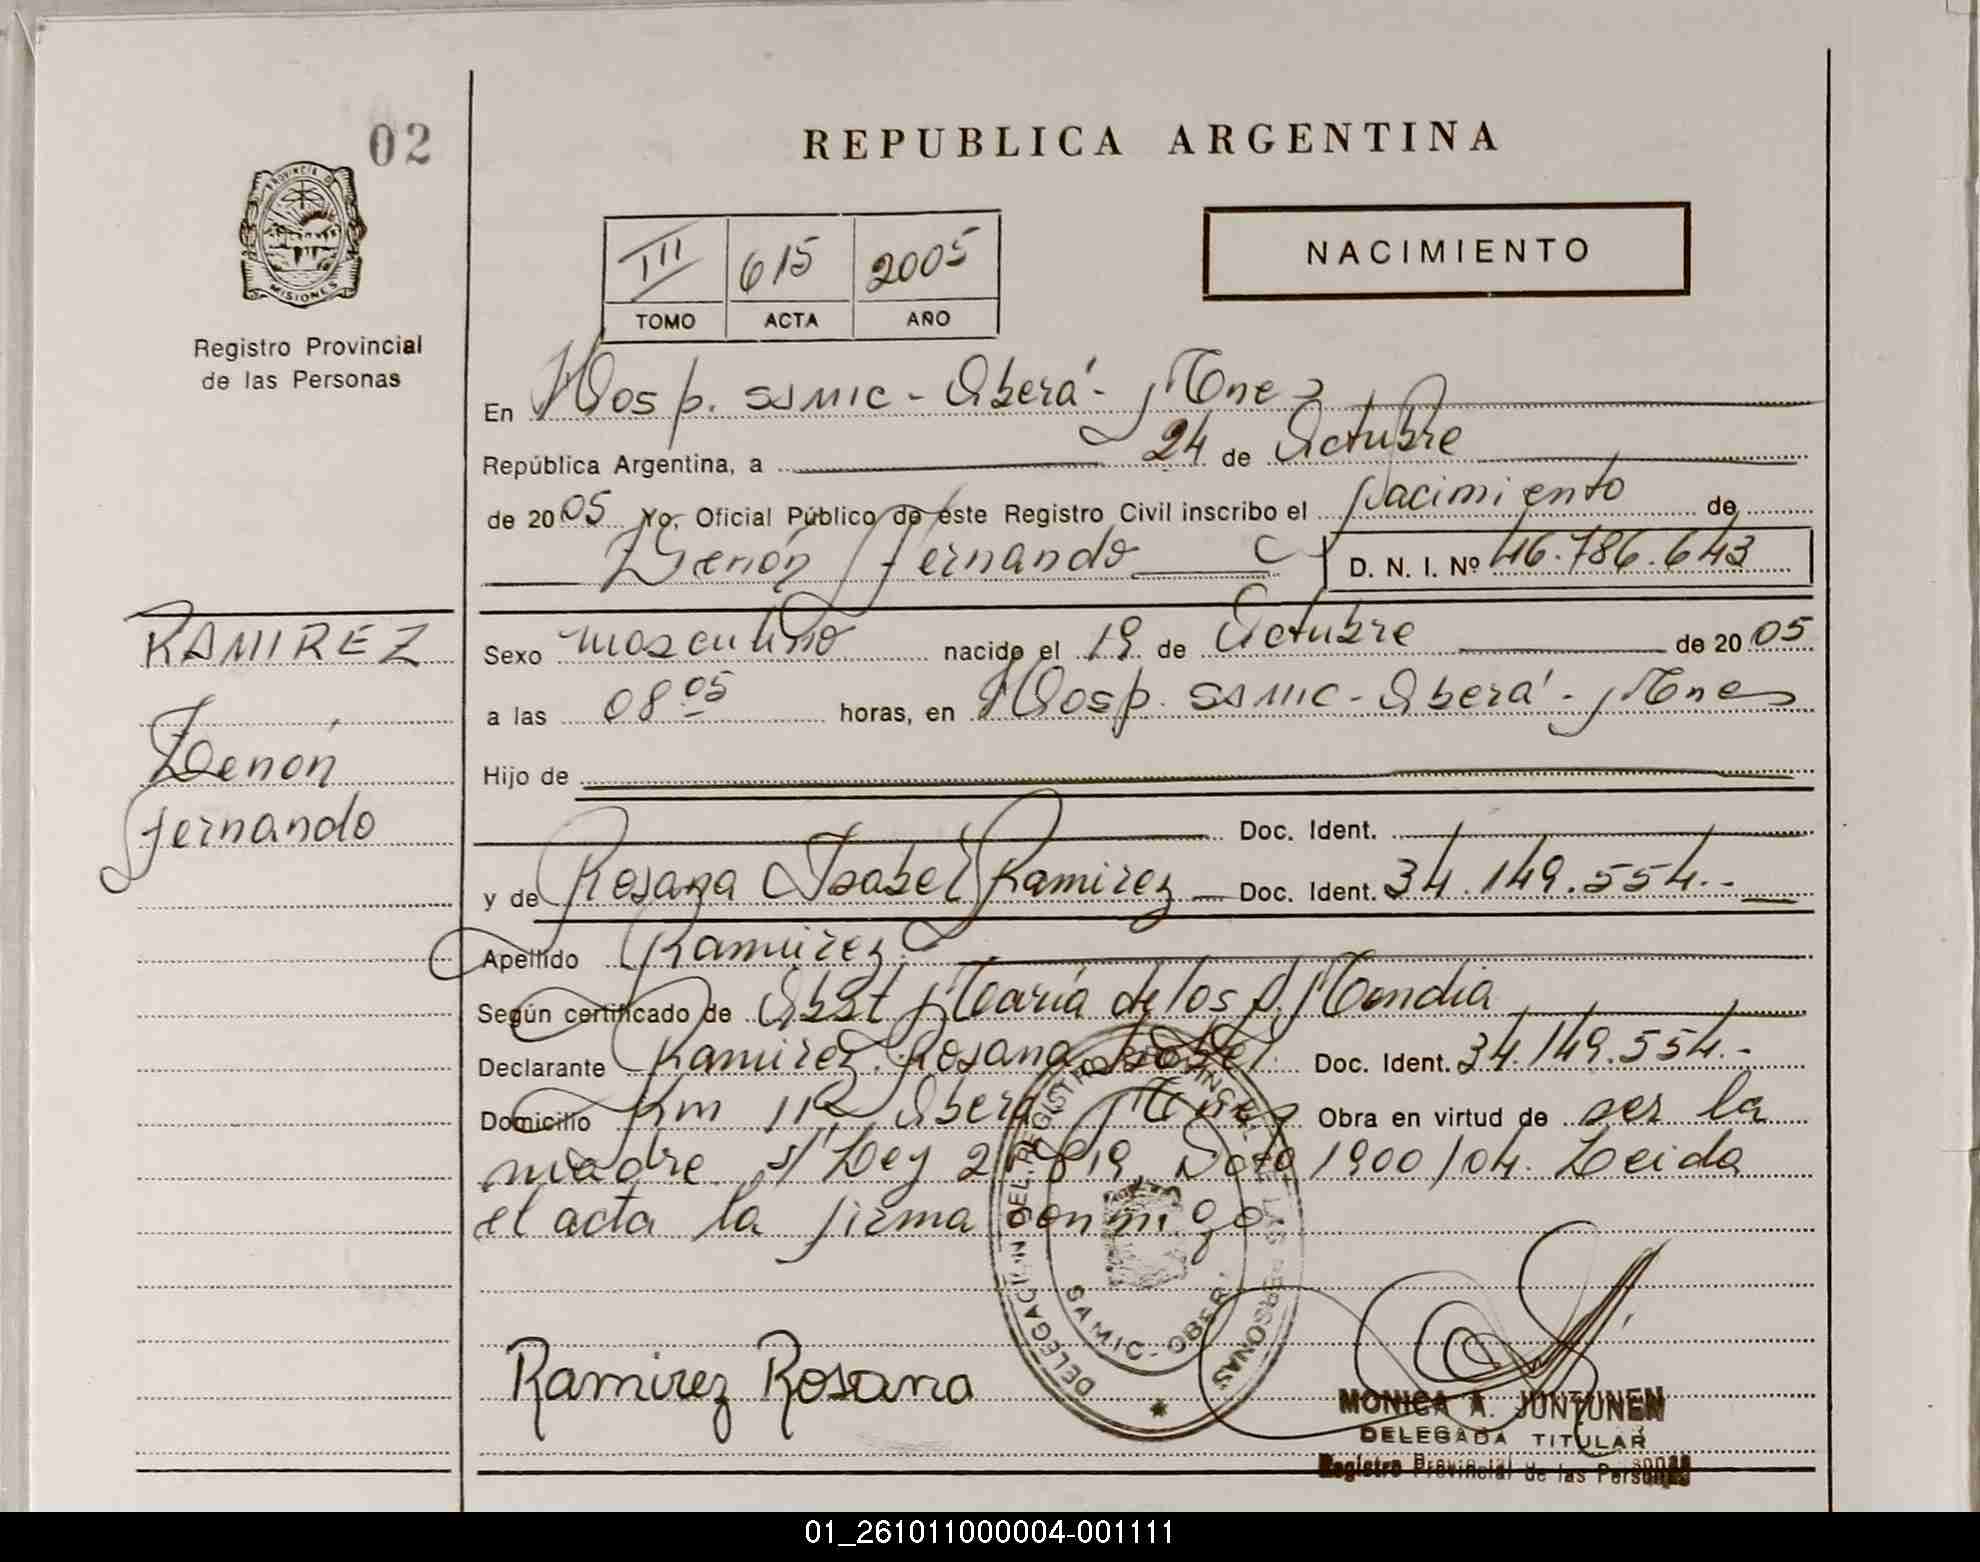 02
REPUBLICA ARGENTINA
PROVINCIA D
MISIONES
Registro Provincial
de las Personas
III 615 2005
TOMO ACTA AÑO
NACIMIENTO
En Hosp. SAMIC - Oberá - Mnes
República Argentina, a 24 de Octubre
de 2005 Yo, Oficial Público de este Registro Civil inscribo el Nacimiento de
Zenón Fernando D. N. I. Nº 46.786.643
RAMIREZ
Zenón
Fernando
Sexo masculino nacido el 19 de Octubre de 2005
a las 08 05 horas, en Hosp. SAMIC - Oberá - Mnes
Hijo de
Doc. Ident.
y de Rosana Isabel Ramirez Doc. Ident. 34.149.554.-
Apellido Ramirez
Según certificado de Obst María de los A. Mendia
Declarante Ramirez Rosana Isabel Doc. Ident. 34.149.554.-
Domicilio Km 112 Oberá Mnes Obra en virtud de ser la
madre s/ Ley 2 819 Dcto 1900/04. Leida
el acta la firma conmigo
DELEGACIÓN DEL REGISTRO PROVINCIAL DE LAS PERSONAS
SAMIC - OBERÁ
Ramirez Rosana
MONICA A. JUNTUNEN
DELEGADA TITULAR
Registro Provincial de las Personas
01_261011000004-001111